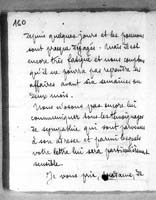 160
depuis quelques jours et les poumons
sont presque dégagés. Mais il est
encore très fatigué et nous comptons
qu'il ne pourra pas reprendre les
affaires avant six semaines ou
deux mois.
Nous n'avons pas encore lui
communiquer tous les témoignages
de sympathie qui sont parvenus
à son adresse et parmi lesquels
votre lettre lui sera particulièrement
sensible.
Je vous prie, de